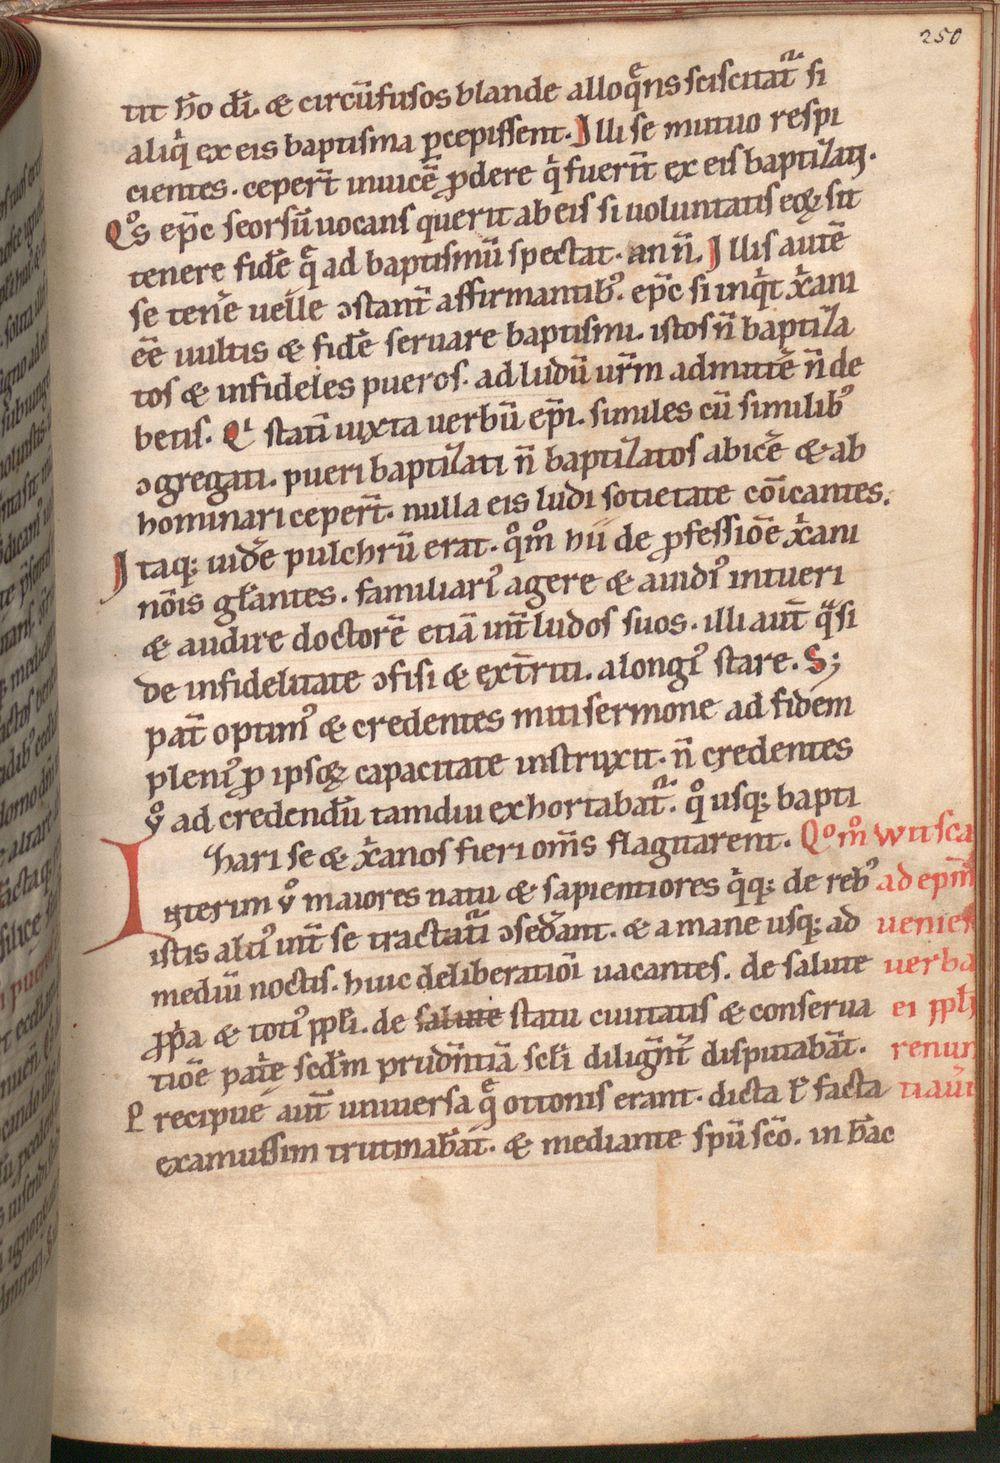 250
tit hō dī. & circūfusos blande alloqͣns sciscitat᷑ si
aliq̇ ex eis baptisma ꝑcepissent. Illi se mutuo respi
cientes. ceper̄t inuicē ꝓdere q̇ fuer̄t ex eis baptizati.
Qͦs ep̄c seorsū uocans querit ab eis si uoluntatis eoꝝ sit
tenere fidē qͣ ad baptismū spectat. an n̄. Illis autē
se tenˀe uelle ↄstant̄ affirmantibꝰ. ep̄c si inqͥt xͥani
eē uultis & fidē seruare baptismi. istos n̄ baptiza
tos & infideles pueros. ad ludū ur̄m admittˀe n̄ de
betis. Qͥ statī iuxta uerbū ep̄i. similes cū similibꝰ
ↄgregati. pueri baptizati n̄ baptizatos abicˀe & ab
hominari ceper̄t. nulla eis ludi sotietate cōicantes.
Itaqꝫ uidˀe pulchrū erat. qͦm hii de ꝓfessiōe xͥani
nōis gl̄antes. familiariꝰ agere & auidiꝰ intueri
& audire doctorē etiā int̄ ludos suos. illi aut̄ qͣsi
de infidelitate ↄfisi & ext̄riti. a longiꝰ stare. S;
pat̄ optimꝰ & credentes miti sermone ad fidem
pleniꝰ ꝓ ipsoꝝ capacitate instruxit. n̄ credentes
uͦ ad credendū tamdiu exhortabat᷑. qͦ usqꝫ bapti
zari se & xͥanos fieri om̄s flagitarent. Qͦmͦ Wirisca
Interim uͦ maiores natu & sapientiores qͥqꝫ de rebꝰ ad ep̄m
istis altiꝰ int̄ se tractaturi ↄsedˀant. & a mane usqꝫ ad ueniēs
mediū noctis. huic deliberatiōi uacantes. de salute uerba
ꝓpͥa & totiꝰ ppl̄i. de salute statu ciuitatis & conserua ei ppl̄i
tiōe patͥe scd̄m prudn̄tiā scl̄i dilign̄t̄ disputabāt. renun
Precipue aut̄ uniuersa qͣ ottonis erant. dicta ł facta tiauit
examussim trutinabāt. & mediante sp̄u sc̄o. in hāc